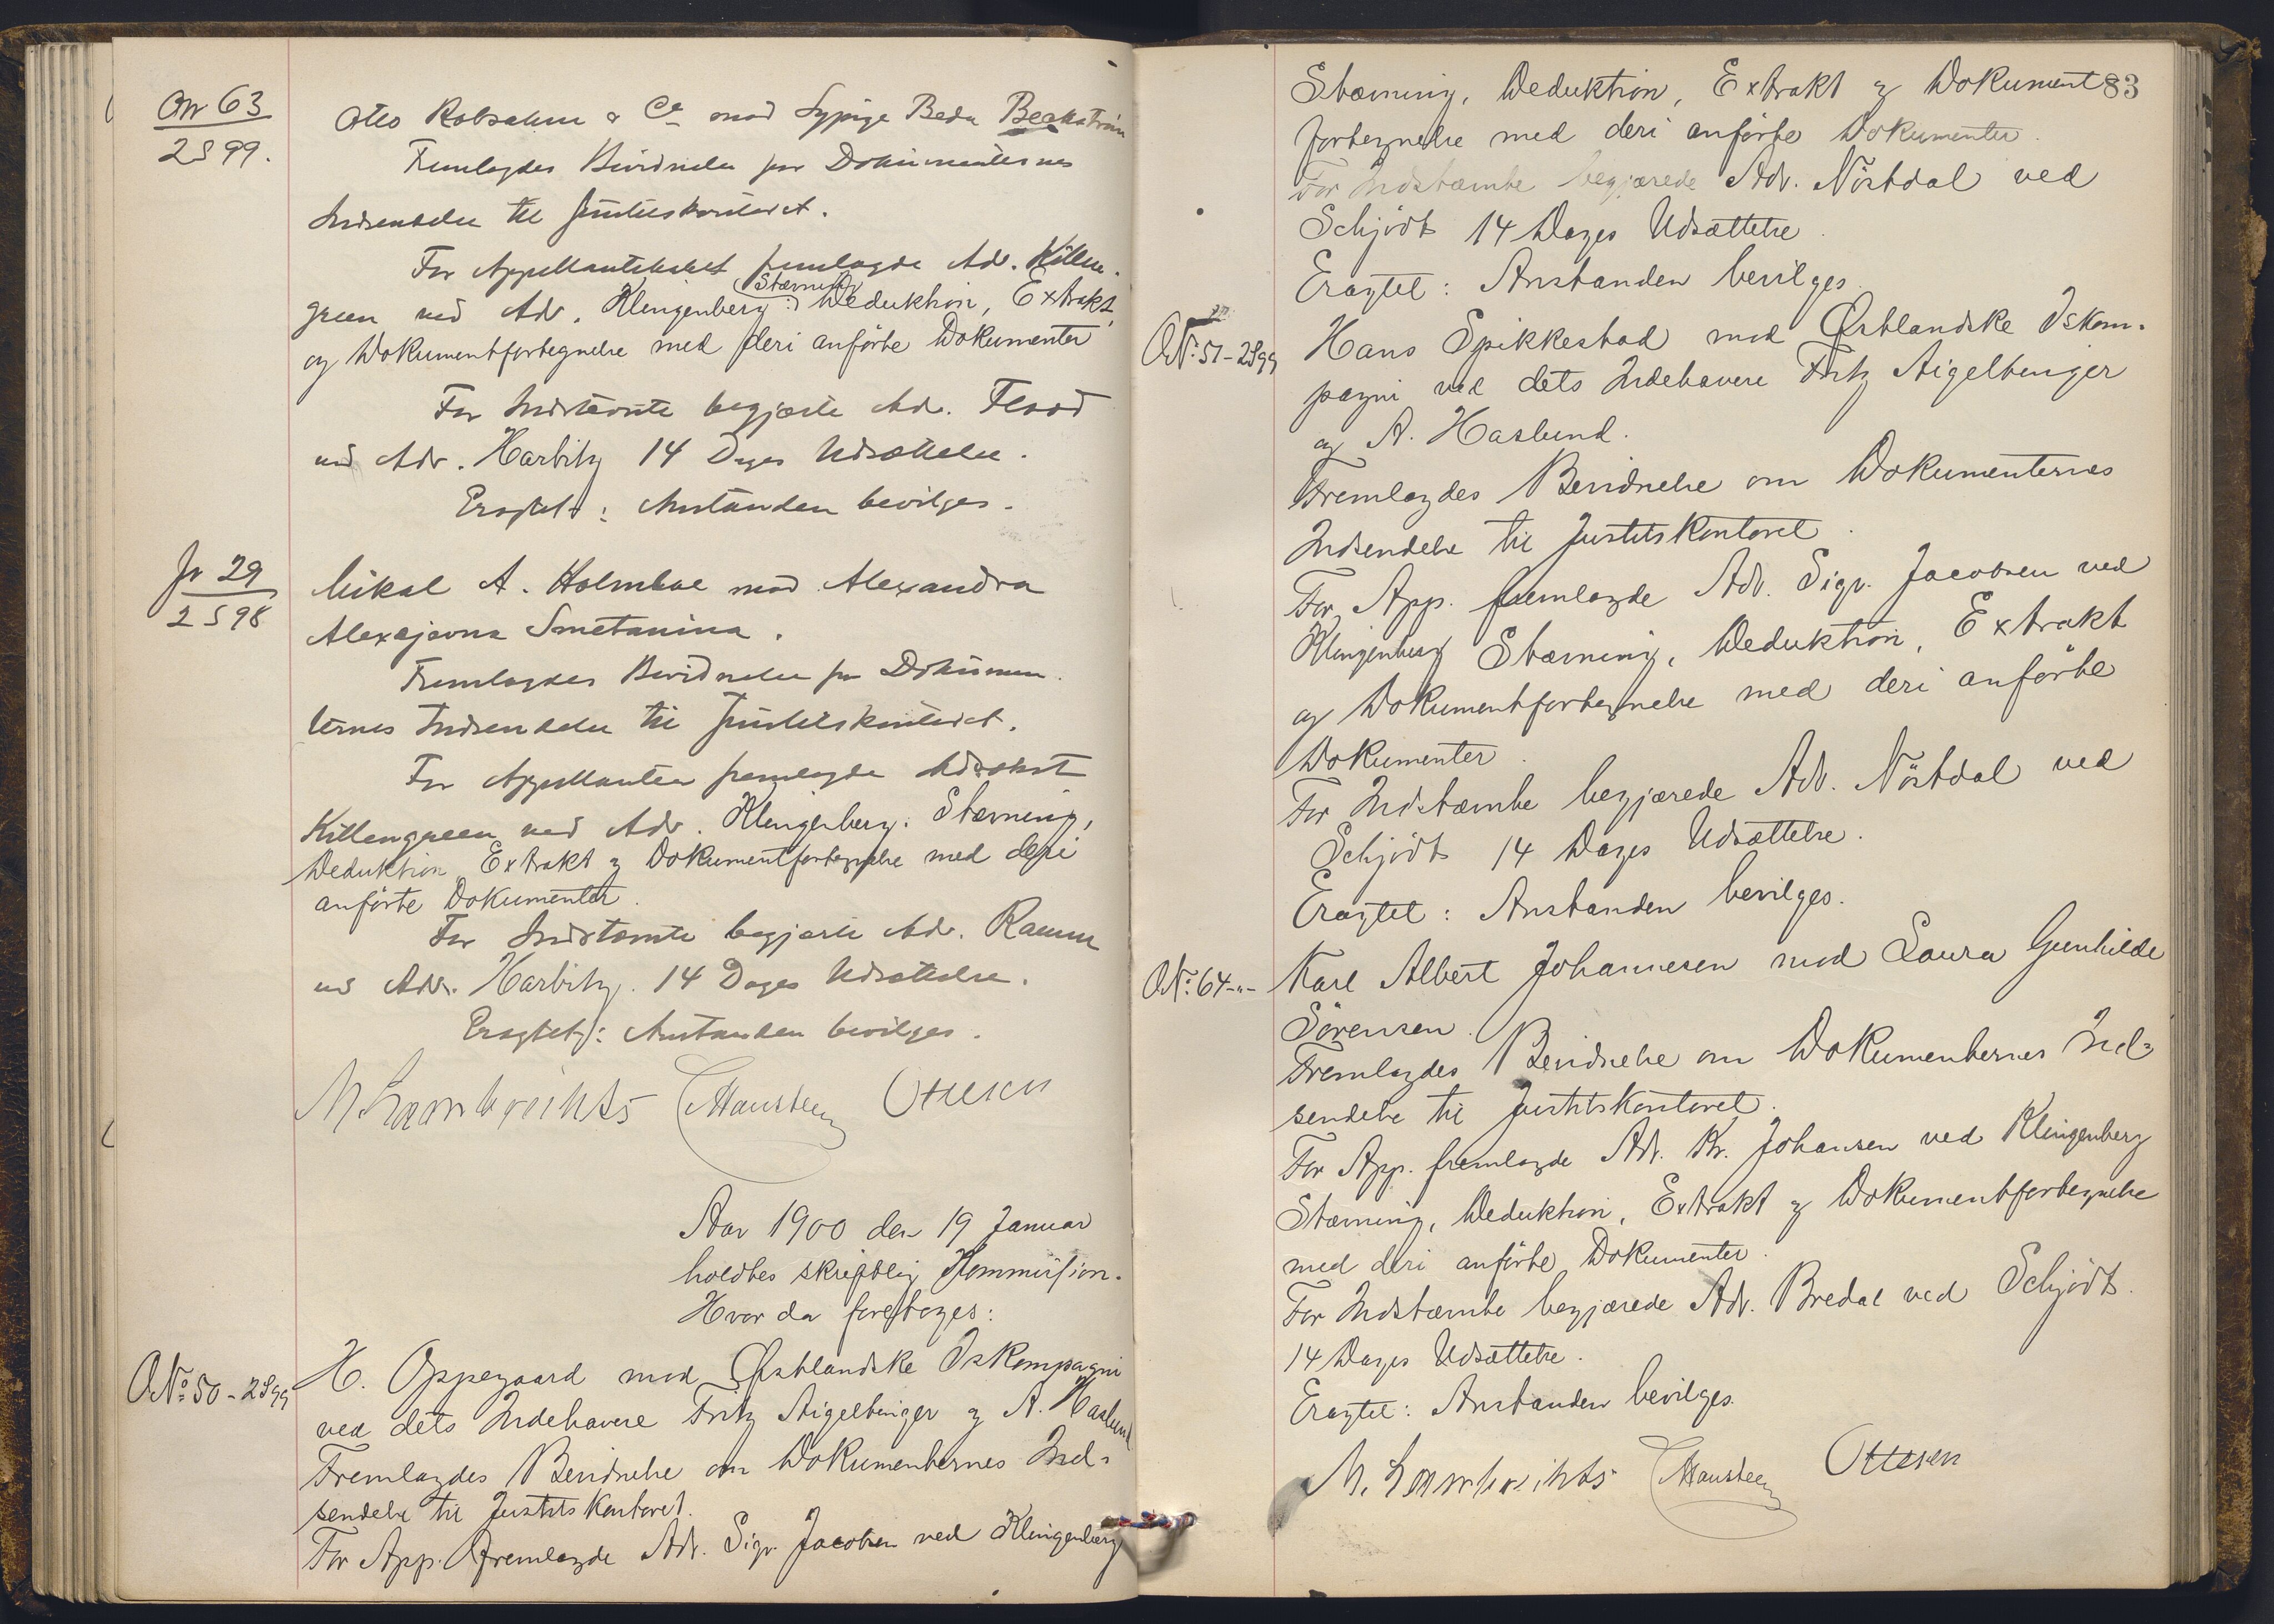 ON 63
2 S 99.
Otto Robsahm & Co mod Sypige Beda Beckström
Fremlagdes Bevidnelse for Dokumenternes
Indsendelse til Justitskontoret.
For Appellantskabet fremlagde Adv. Killen-
green ved Adv. Klingenberg: Stævning, Deduktion, Extrakt
og Dokumentfortegnelse med deri anførte Dokumenter
For Indstævnte begjærte Adv. Flood
ved Adv. Harbitz 14 Dages Udsættelse.
Eragtet: Anstanden bevilges.
Jr 29
2 S 98
Mikal A. Holmboe mod Alexandra
Alexejevna Smetanina.
Fremlagdes Bevidnelse for Dokumen-
ternes Indsendelse til Justitskontoret.
For Appellanten fremlagde Advokat
Killengreen ved Adv. Klingenberg: Stævning,
Deduktion, Extrakt & Dokumentfortegnelse med deri
anførte Dokumenter.
For Indstævnte begjærte Adv. Ramm
ved Adv. Harbitz. 14 Dages Udsættelse.
Eragtet: Anstanden bevilges.
M Lambrechts CHansteen Ottesen
Aar 1900 den 19 Januar
holdtes skriftlig Kommission.
Hvor da foretoges:
ONo 50 - 2S99
H. Oppegaard mod Østlandske Iskompagni
ved dets Indehavere Fritz Aigeltinger & A. Haslund
Fremlagdes Bevidnelse om Dokumenternes Ind-
sendelse til Justitskontoret.
For App. fremlagde Adv. Sigv. Jacobsen ved Klingenberg
83
Stævning, Deduktion, Extrakt & Dokument
fortegnelse med deri anførte Dokumenter.
For Indstævnte begjærede Adv. Nöstdal ved
Schjödt 14 Dages Udsættelse.
Eragtet: Anstanden bevilges.
ONo 51 - 2S99
Hans Spikkestad mod Østlandske Iskom-
pagni ved dets Indehavere Fritz Aigeltinger
og A. Haslund.
Fremlagdes Bevidnelse om Dokumenternes
Indsendelse til Justitskontoret.
For App. fremlagde Adv. Sigv. Jacobsen ved
Klingenberg Stævning, Deduktion, Extrakt
og Dokumentfortegnelse med deri anförte
Dokumenter.
For Indstævnte begjærede Adv. Nöstdal ved
Schjödt 14 Dages Udsættelse.
Eragtet: Anstanden bevilges.
ONo 64 -"-
Karl Albert Johannesen mod Laura Gunhilde
Sörensen.
Fremlagdes Bevidnelse om Dokumenternes Ind-
sendelse til Justitskontoret.
For App. fremlagde Adv. Kr. Johansen ved Klingenberg
Stævning, Deduktion, Extrakt & Dokumentfortegnelse
med deri anförte Dokumenter.
For Indstævnte begjærede Adv. Bredal ved Schjödt.
14 Dages Udsættelse.
Eragtet: Anstanden bevilges.
M. Lambrechts CHansteen Ottesen